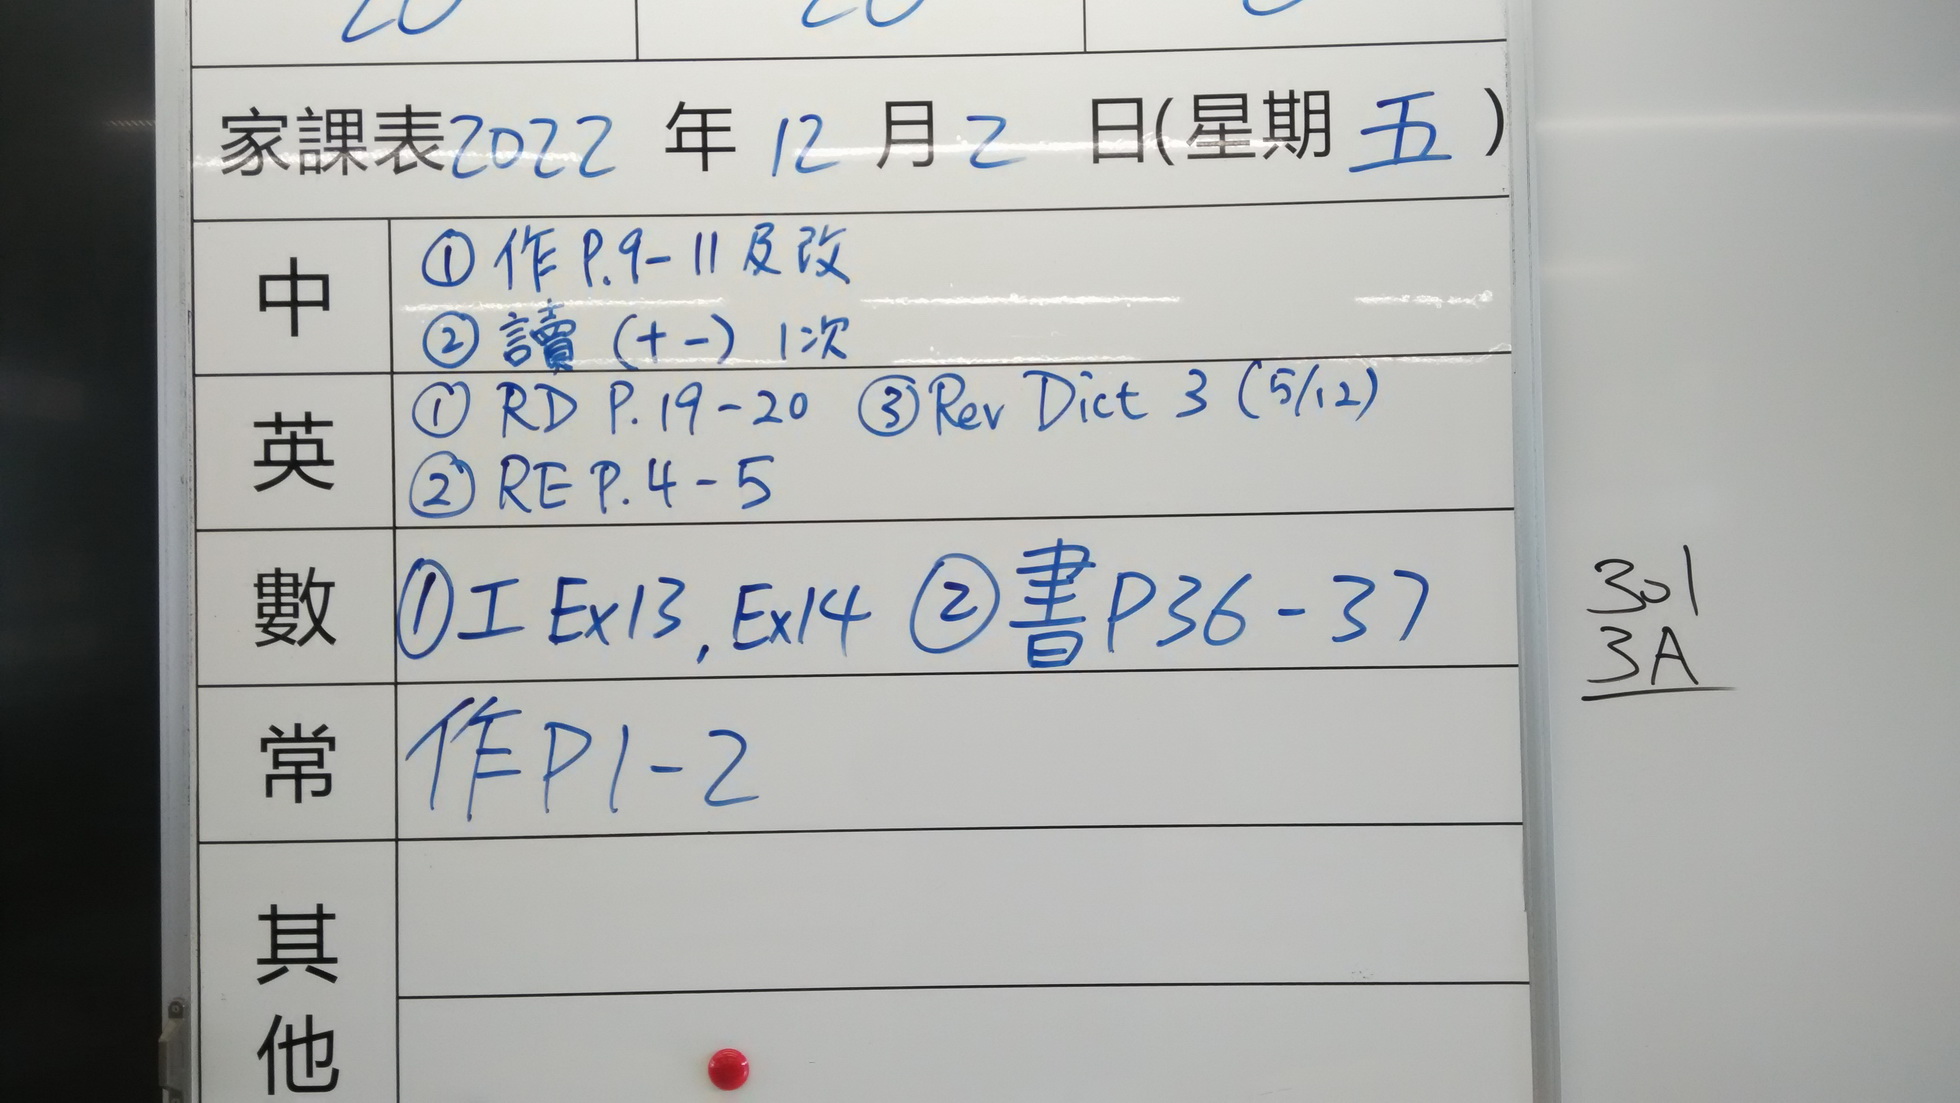 20 20
家課表2022 年 12 月 2 日(星期 五 )
中
①作 P.9-11 及改
②讀 (十一) 1次
英
①RD P.19-20 ③Rev Dict 3 (5/12)
②RE P.4-5
數
①工 Ex13, Ex14 ②書P36-37
常
作P1-2
其
他
301
3A